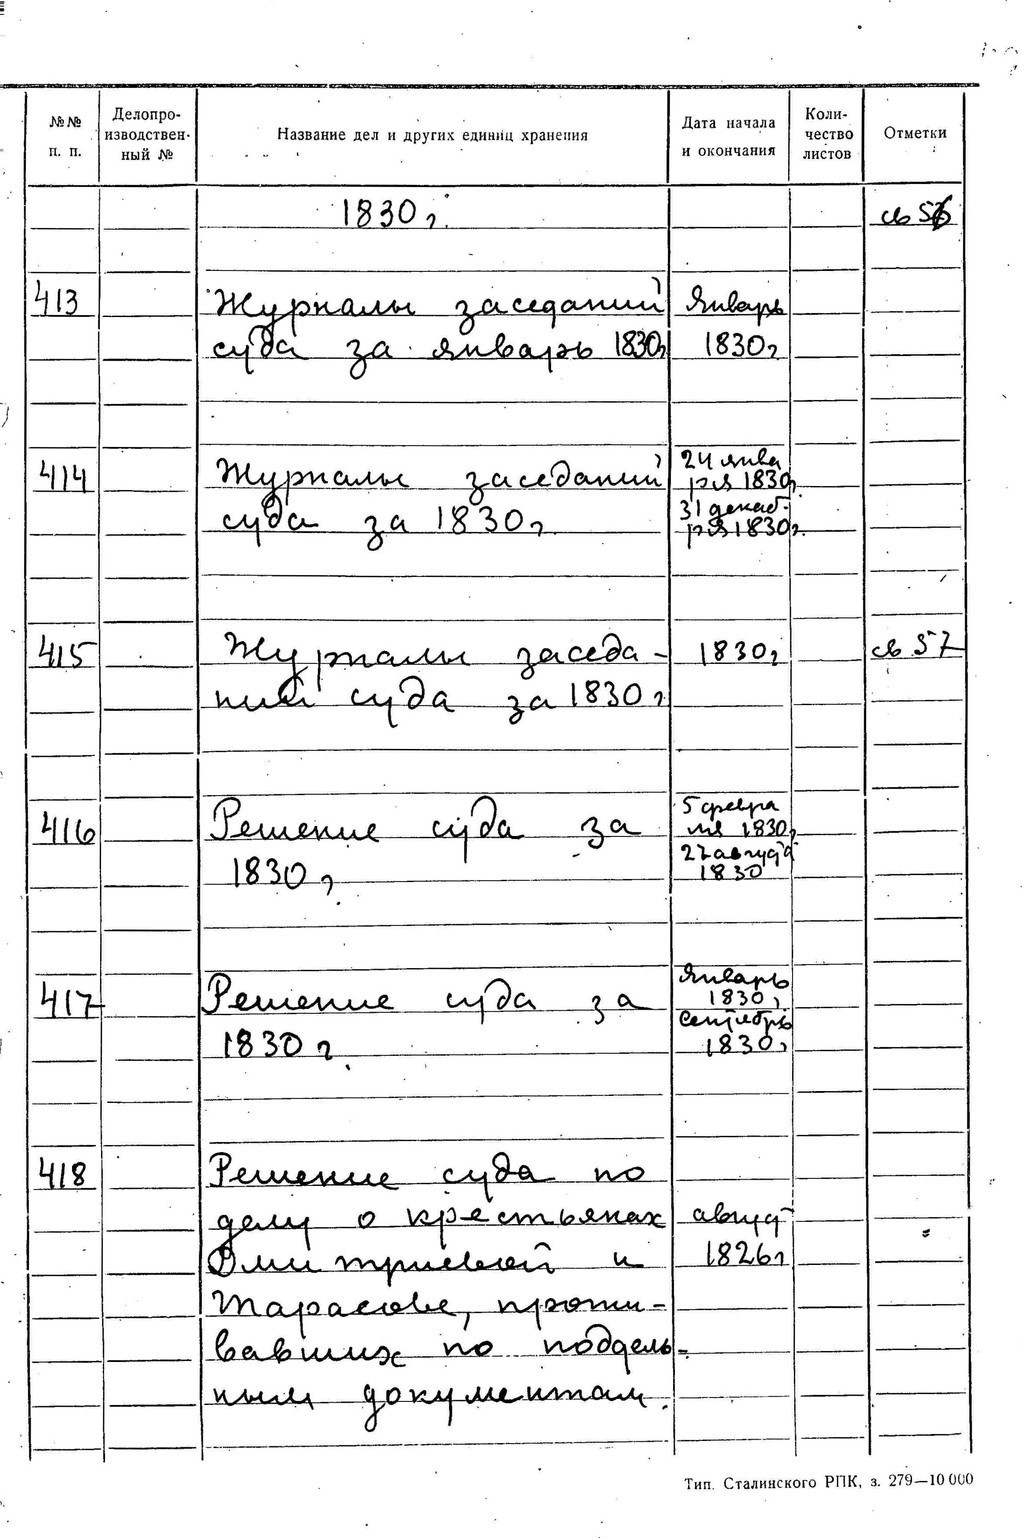 №№ п. п.
Делопро-
изводствен-
ный №
Название дел и других единиц хранения
Дата начала
и окончания
Коли-
чество
листов
Отметки
1830 г.
св 56
413
Журналы заседаний
суда за январь 1830 г
Январь
1830 г
414
Журналы заседаний
суда за 1830 г
24 янва
ря 1830 г.
31 декаб-
ря 1830 г.
415
Журналы заседа-
ний суда за 1830 г
1830 г
св 57
416
Решение суда за
1830 г.
5 февра
ля 1830 г
27 август
1830
417
Решение суда за
1830 г.
Январь
1830 г
Сентябрь
1830 г
418
Решение суда по
делу о крестьянах
Дмитриевой и
Тарасове, прожи-
вавших по поддель-
ным документам.
август
1826 г
Тип. Сталинского РПК, з. 279—10 000